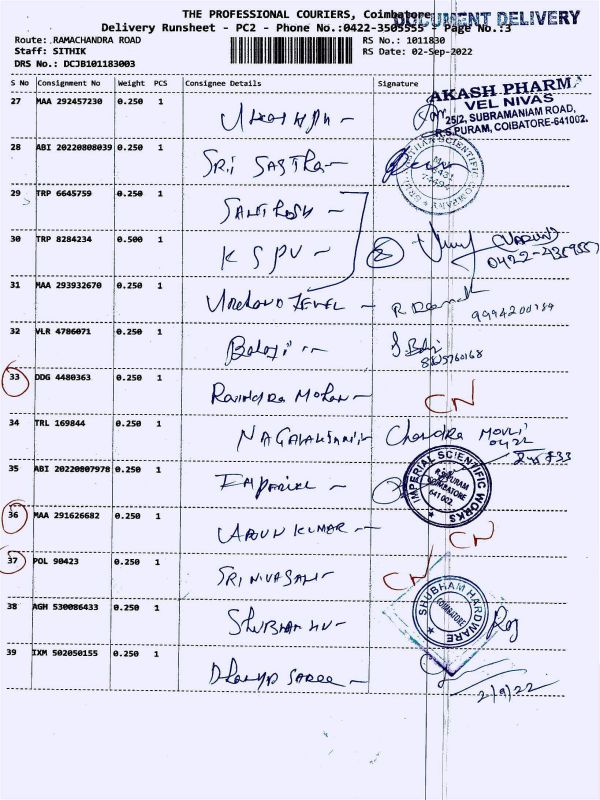 THE PROFESSIONAL COURIERS, Coimbatore
DOCUMENT DELIVERY
Delivery Runsheet - PC2 - Phone No.:0422-3505555 - Page No.:3
Route: RAMACHANDRA ROAD
RS No.: 1011830
Staff: SITHIK
RS Date: 02-Sep-2022
DRS No.: DCJB101183003
S No Consignment No Weight PCS Consignee Details Signature
27 MAA 292457230 0.250 1
AKASH PHARM
VEL NIVAS
25/2, SUBRAMANIAM ROAD,
R.S.PURAM, COIBATORE-641002.
28 ABI 20220808039 0.250 1 Sri Sastha
29 TRP 6645759 0.250 1 Santhosh
30 TRP 8284234 0.500 1 K S P V
(VARUN)
31 MAA 293932670 0.250 1
32 VLR 4786071 0.250 1 Balaji
33 DDG 4480363 0.250 1 Ravindra Mohan CN
34 TRL 169844 0.250 1 Chandra Mouli
0422
35 ABI 20220807978 0.250 1 Imperial
IMPERIAL SCIENTIFIC WORKS
R.S.PURAM
COIMBATORE
641 002
36 MAA 291626682 0.250 1 ARUN KUMAR CN
37 POL 90423 0.250 1 SRINIVASAN CN
38 AGH 530086433 0.250 1 Shubham HW
SHUBHAM HARDWARE
COIMBATORE
39 IXM 502050155 0.250 1 Dhanya Saree
2/9/22